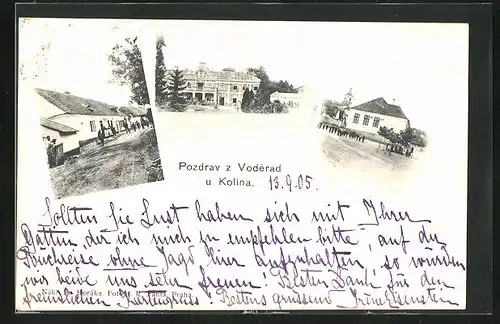 Pozdrav z Voděrad
u Kolína. 13.9.05.
Sollten Sie Lust haben sich mit Ihrer
Gattin, der ich mich zu empfehlen bitte, auf der
ohne Jagd hier aufzuhalten, so würden
wir beide uns sehr freuen! Besten Dank für den
freundlichen Bestens grüssend
Horáka. Fotogr. Praha.